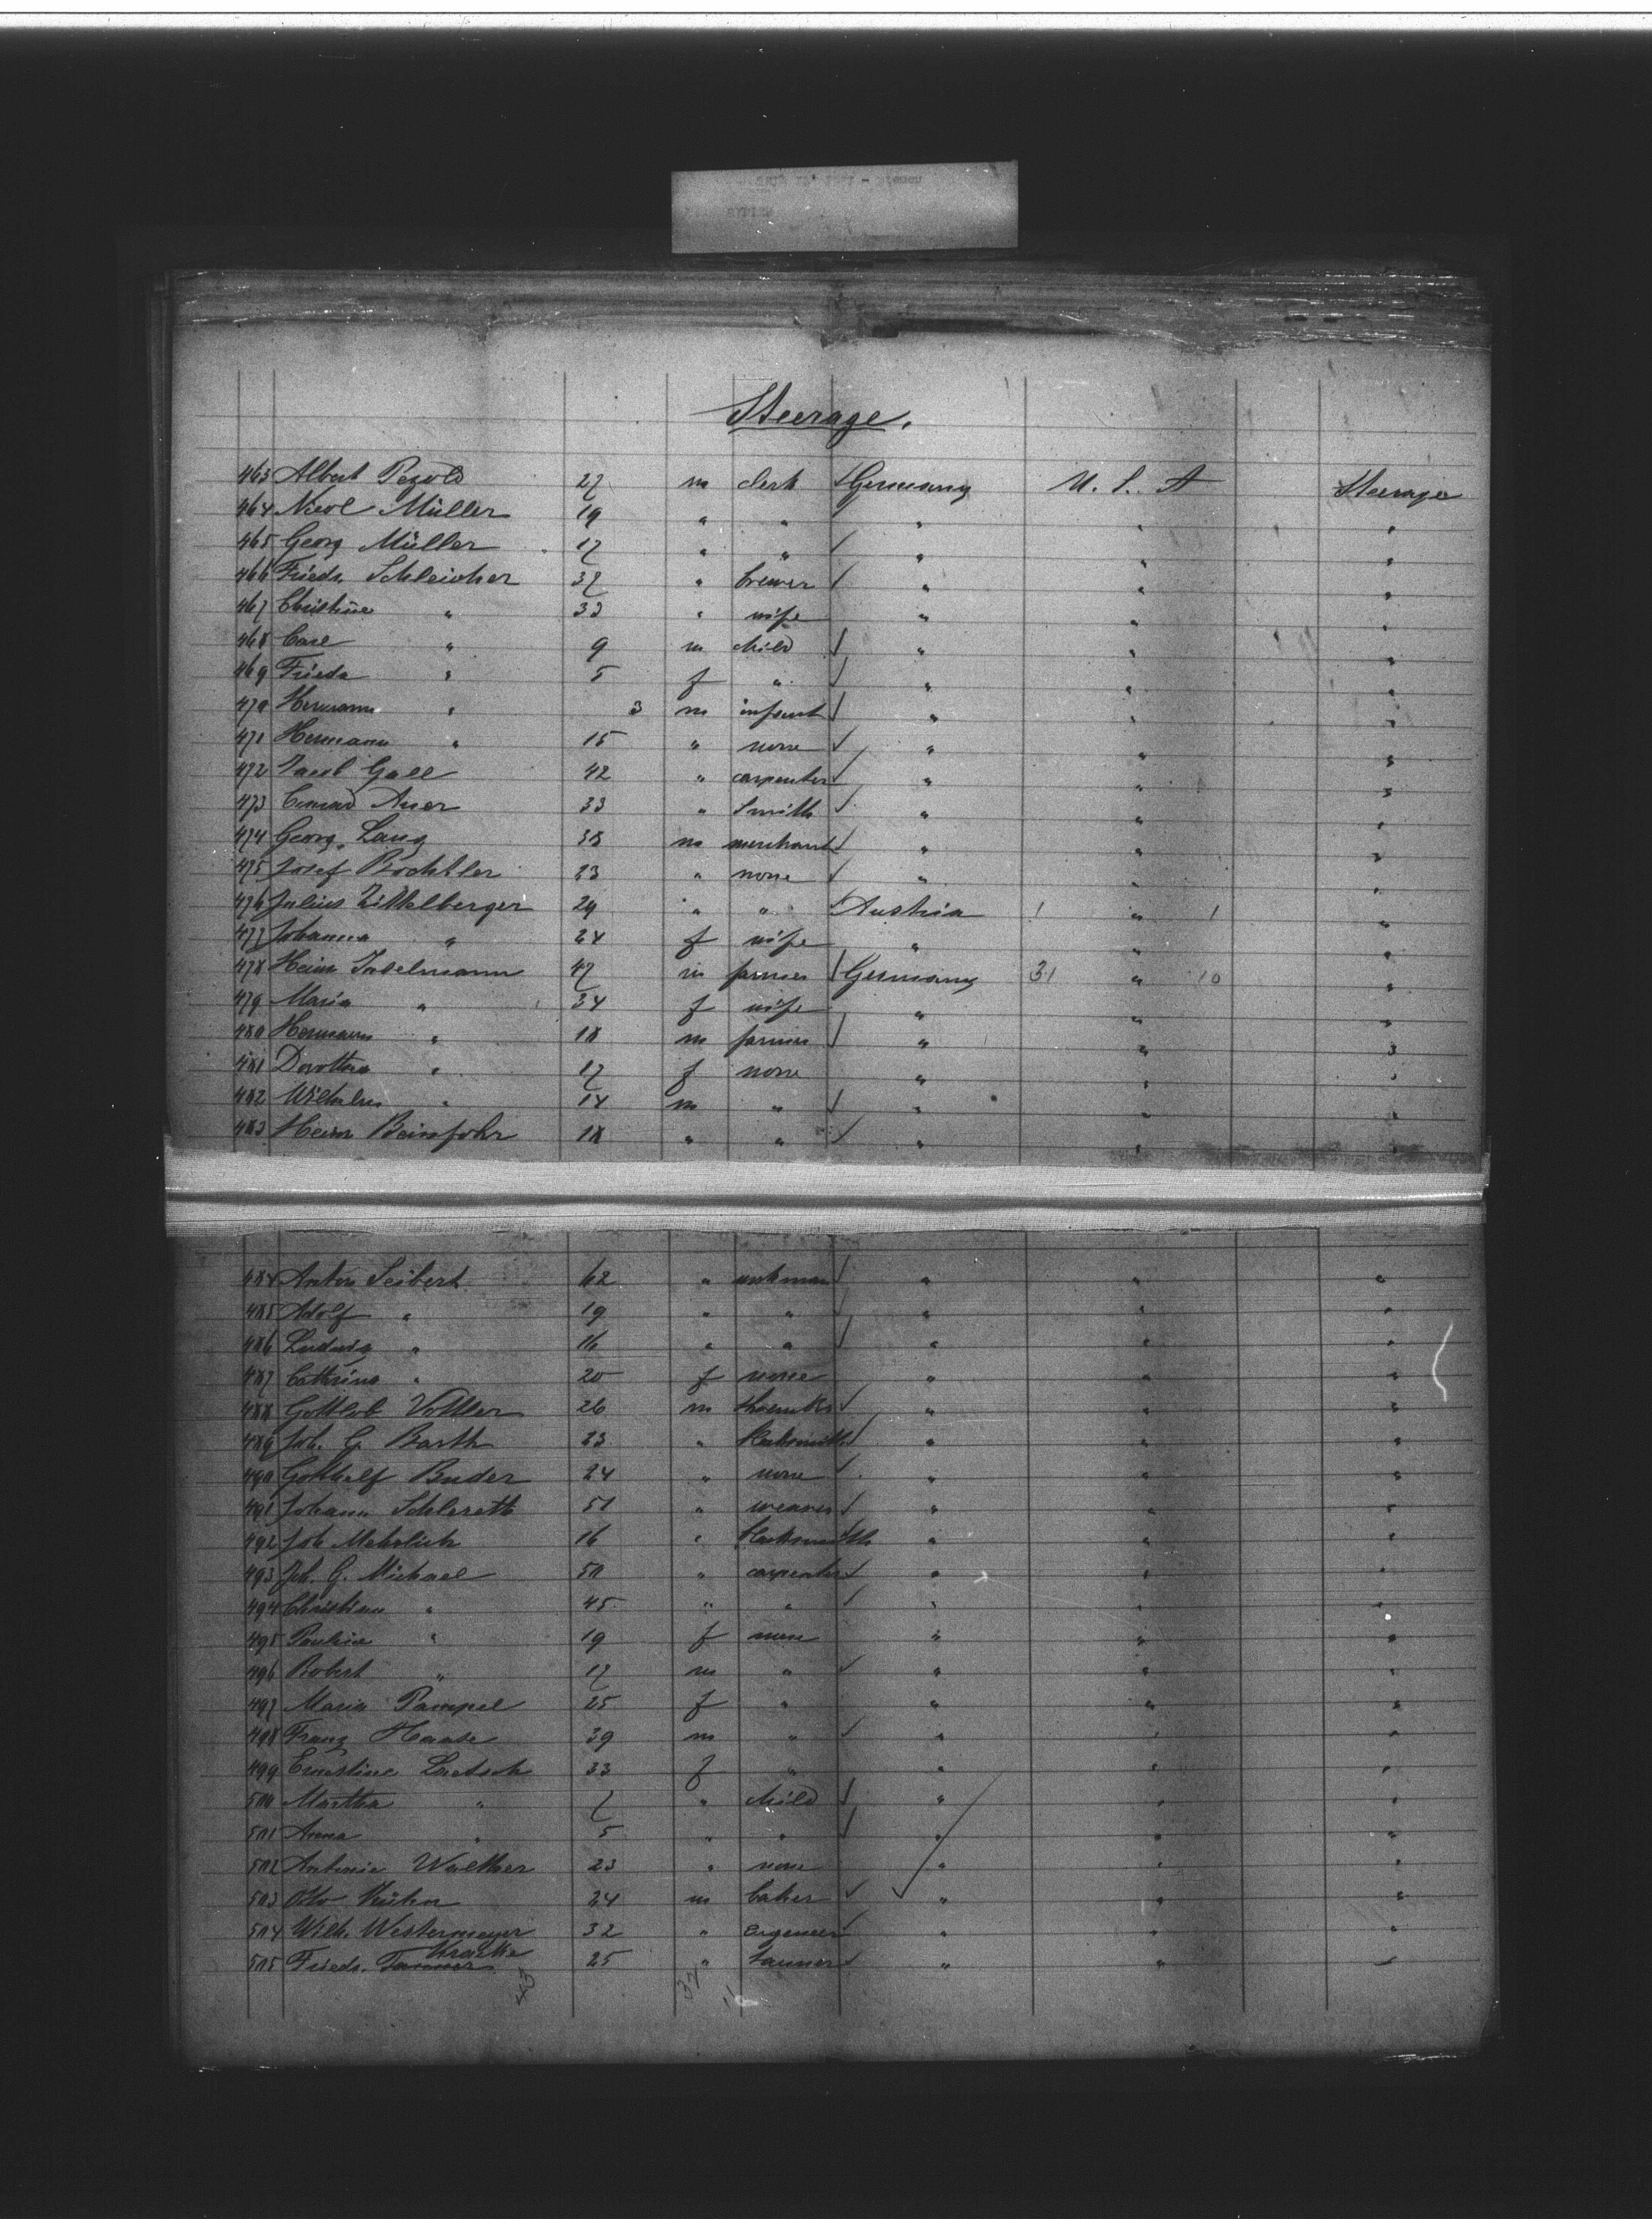 Steerage.
463 Albert Pezold 27 m clerk ✓ Germany U. S. A Steerage
464 Nicol Müller 19 " " ✓ " " "
465 Georg Müller 17 " " ✓ " " "
466 Friedr. Schleicher 37 " brewer ✓ " " "
467 Christine " 33 " wife " " "
468 Carl " 9 m child ✓ " " "
469 Frieda " 5 f " ✓ " " "
470 Hermann " 3 m infant ✓ " " "
471 Hermann " 15 " none ✓ " " "
472 Jacob Gall 42 " carpenter ✓ " " "
473 Conrad Auer 33 " Smith ✓ " " "
474 Georg Lang 38 m merchant ✓ " " "
475 Josef Bochtler 23 " none ✓ " " "
476 Julius Zittelberger 29 " " ✓ Austria 1 " 1 "
477 Johanna " 24 f wife " " "
478 Heinr 47 m farmer ✓ Germany 31 " 10 "
479 Maria " 34 f wife " " "
480 Hermann " 18 m farmer ✓ " " "
481 Dorothea " 17 f none " " "
482 Wilhelm " 14 m " ✓ " " "
483 Heinr Beinfohr 18 " " ✓ " " "
484 Anton Seibert 62 " workman ✓ " " "
485 Adolf " 19 " " ✓ " " "
486 Ludwig " 16 " " ✓ " " "
487 Cathrina " 20 f none " " "
488 Gottlob Vottler 26 m ✓ " " "
489 Joh. G. Barth 23 " blacksmith ✓ " " "
490 Gotthelf Buder 24 " none ✓ " " "
491 Johann Schlereth 51 " weaver ✓ " " "
492 Joh Mehrlich 16 " blacksmith ✓ " " "
493 Joh. G. Michael 50 " carpenter ✓ " " "
494 Christian " 45 " " ✓ " " "
495 Paulina " 19 f none " " "
496 Robert " 17 m " ✓ " " "
497 Maria Pampel 25 f " " " "
498 Franz Haase 39 m " ✓ " " "
499 Ernestine Laetsch 33 f " " " "
500 Martha " 7 " child ✓ " " "
501 Anna " 5 " " ✓ " " "
502 Antonie Walther 23 " none " " "
503 Otto Kühn 24 m baker ✓ " " "
504 Wilh. Westermeyer 32 " engeneer ✓ " " "
505 Friedr. Tanner 25 " tanner ✓ " " "
43 32 11